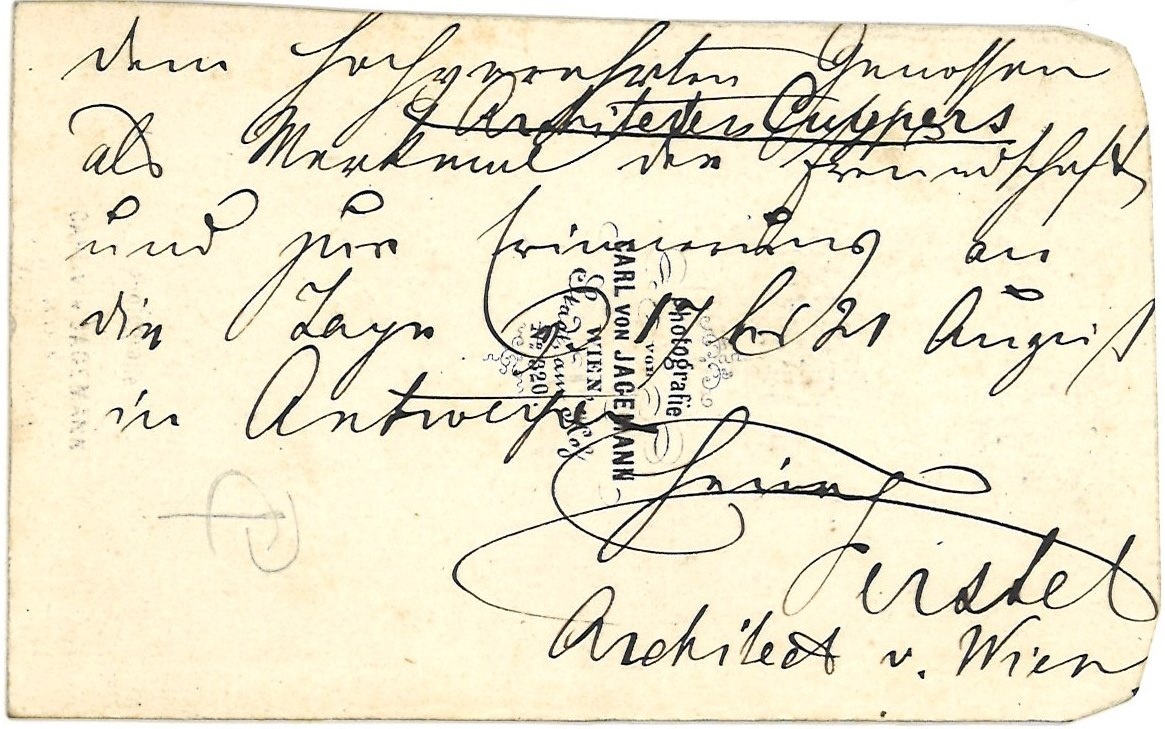 dem hochverehrten Genossen
Architecten Cuypers
als Merkmal der Freundschaft
und zur Erinnerung an
die Tage v. 17 bis 21 August
in Antwerpen
Heinr
Ferstel
Architect v. Wien
Photografie
von
CARL VON JAGEMANN
WIEN,
Stadt am Hof
No. 320